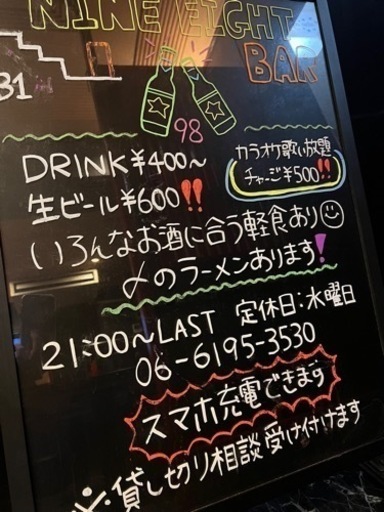 NINE EIGHT
BAR
31
98
DRINK¥400~
生ビール¥600!!
カラオケ歌い放題
チャージ¥500!!
いろんなお酒に合う軽食あり☺
〆のラーメンあります!
21:00~LAST 定休日:水曜日
06-6195-3530
スマホ充電できます
※貸し切り相談受け付けます